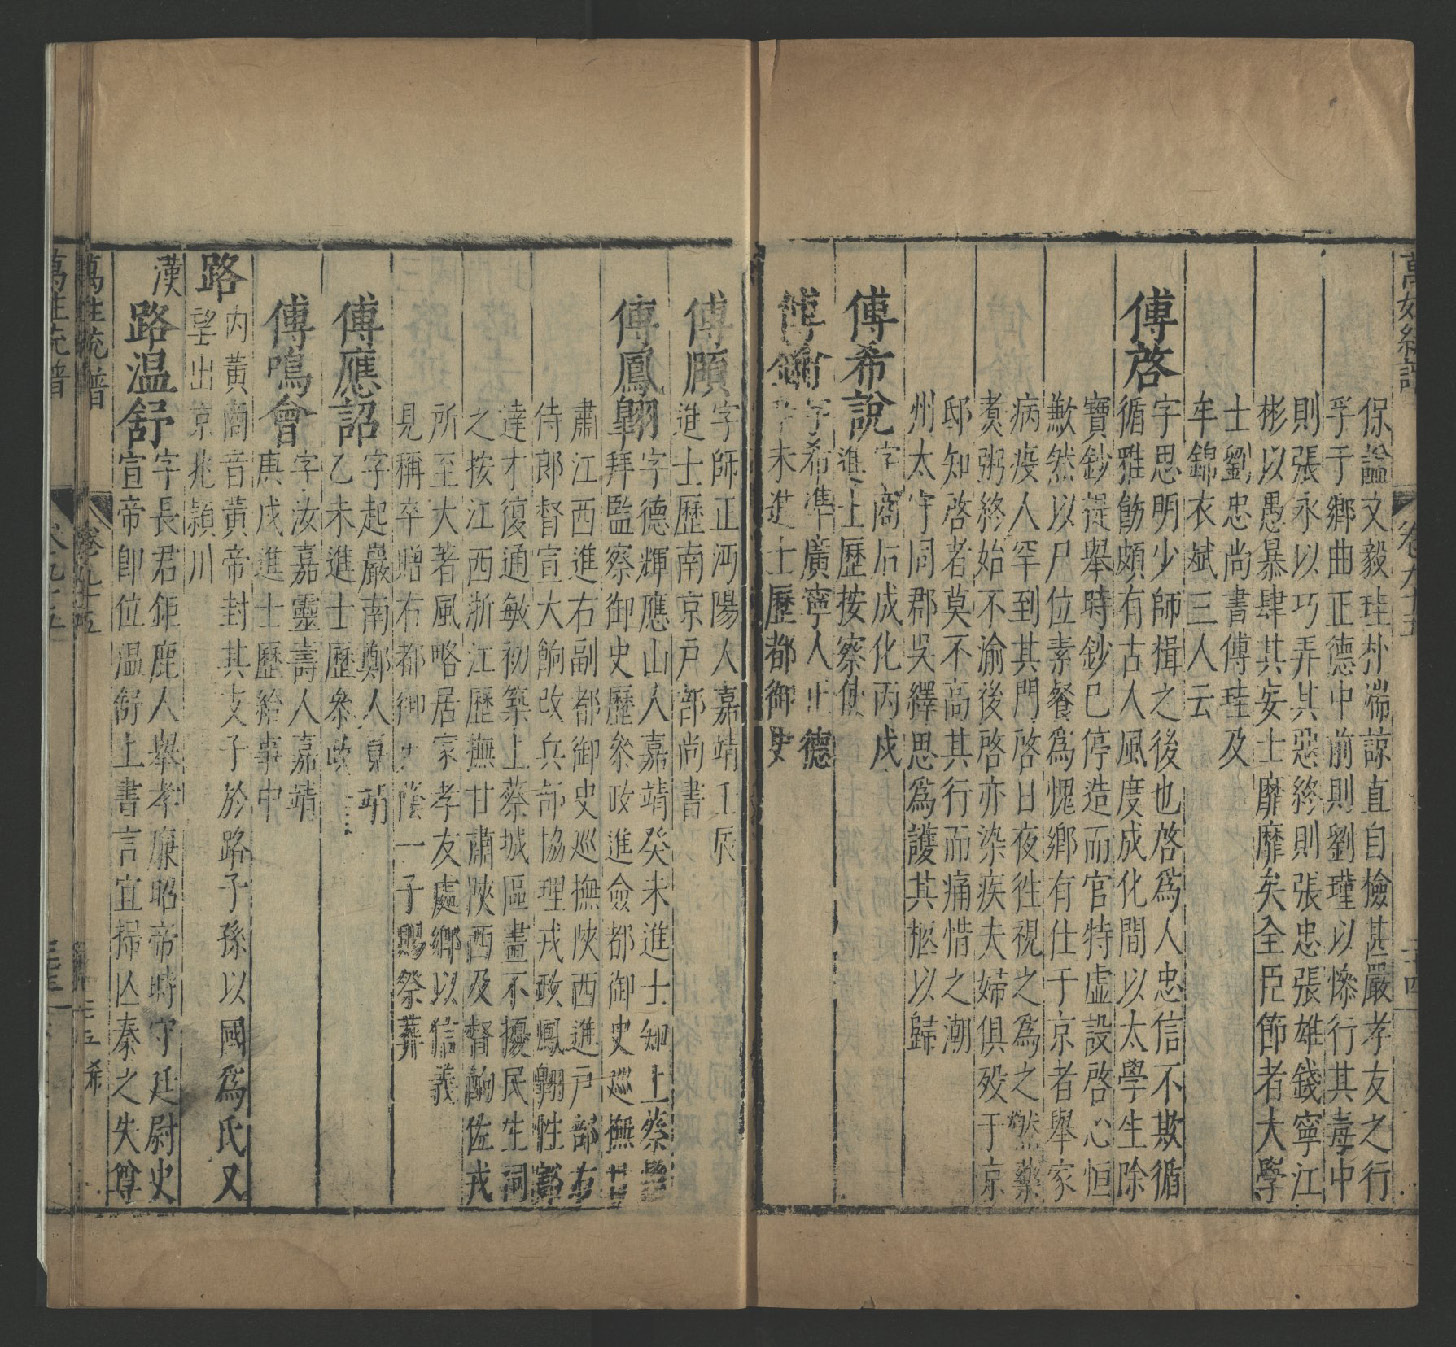 保謚文毅珪朴耑諒直自檢甚嚴孝友之行
孚于鄉曲正德中前則劉瑾以慘行其毒中
則張永以巧弄其惡終則張忠張雄錢寧江
彬以愚暴肆其妄士靡靡矣全臣節者大學
士劉忠尚書傅珪及
牟錦衣斌三人云
傅啓
字思明少師揖之後也啓爲人忠信不欺循
循雅飭頗有古人風度成化間以太學生除
寶鈔提舉時鈔已停造而官特虛設啓心恒
歉然以尸位素餐爲愧鄉有仕于京者舉家
病疫人罕到其門啓日夜徃視之爲之燃藥
煑粥終始不渝後啓亦染疾夫婦俱殁于京
邸知啓者莫不高其行而痛惜之潮
州太守同郡吳繹思爲護其柩以歸
傅希說
字商后成化丙戌
進士歷按察使
傅鑰
字希準廣寧人正德
辛未進士歷都御史
傅頤
字師正沔陽人嘉靖壬辰
進士歷南京戶部尚書
傅鳳翶
字德輝應山人嘉靖癸未進士知上蔡
拜監察御史歷叅政進僉都御史巡撫甘
肅江西進右副都御史巡撫陝西進戶部右
侍郎督宣大餉改兵部協理戎政鳳翶性
達才復通敏初築上蔡城區畫不擾民生祠
之按江西浙江歷撫甘肅陝西及督餉佐戎
所至大著風略居家孝友處鄉以信義
見稱卒贈右都御史蔭一子賜祭葬
傅應詔
字起巖南鄭人嘉靖
乙未進士歷叅政
傅鳴會
字汝嘉靈壽人嘉靖
庚戌進士歷給事中
路
內黃商音黃帝封其支子於路子孫以國爲氏又
望出京兆潁川
漢
路温舒
字長君鉅鹿人舉孝廉昭帝時守廷尉史
宣帝卽位温舒上書言宜掃亾秦之失尊
萬姓統譜
卷九十五